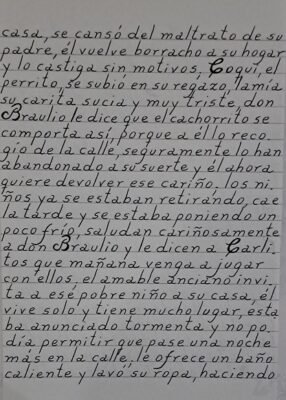 casa, se cansó del maltrato de su
padre, él vuelve borracho a su hogar
y lo castiga sin motivos, Coqui, el
perrito, se subió en su regazo, lamía
su carita sucia y muy triste, don
Braulio le dice que el cachorrito se
comporta así, porque a él lo reco
gío de la calle, seguramente lo han
abandonado a su suerte y él ahora
quiere devolver ese cariño, los ni_
ños ya se estaban retirando, cae
la tarde y se estaba poniendo un
poco frío, saludan cariñosamente
a don Braulio y le dicen a Carli_
tos que mañana venga a jugar
con ellos, el amable anciano invi_
ta a ese pobre niño a su casa, él
vive solo y tiene mucho lugar, esta
ba anunciado tormenta y no po_
día permitir que pase una noche
más en la calle, le ofrece un baño
caliente y lavó su ropa, haciendo